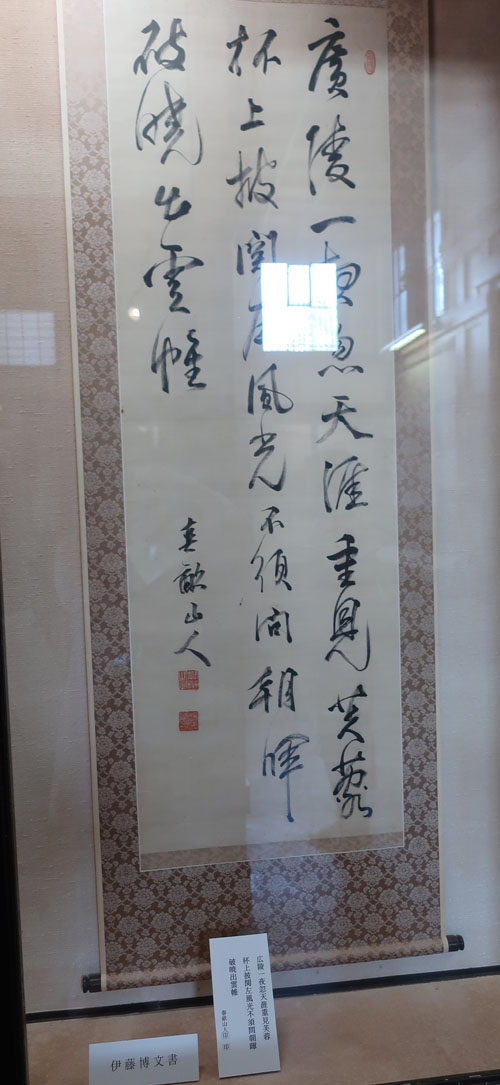 廣陵一夜忽天涯重見芙蓉
杯上披閲左風光不須問朝暉
破曉出雲帷
春畝山人
広陵一夜忽天涯重見芙蓉
杯上披閲左風光不須問朝暉
破曉出雲
春畝山人 印 印
伊藤博文書